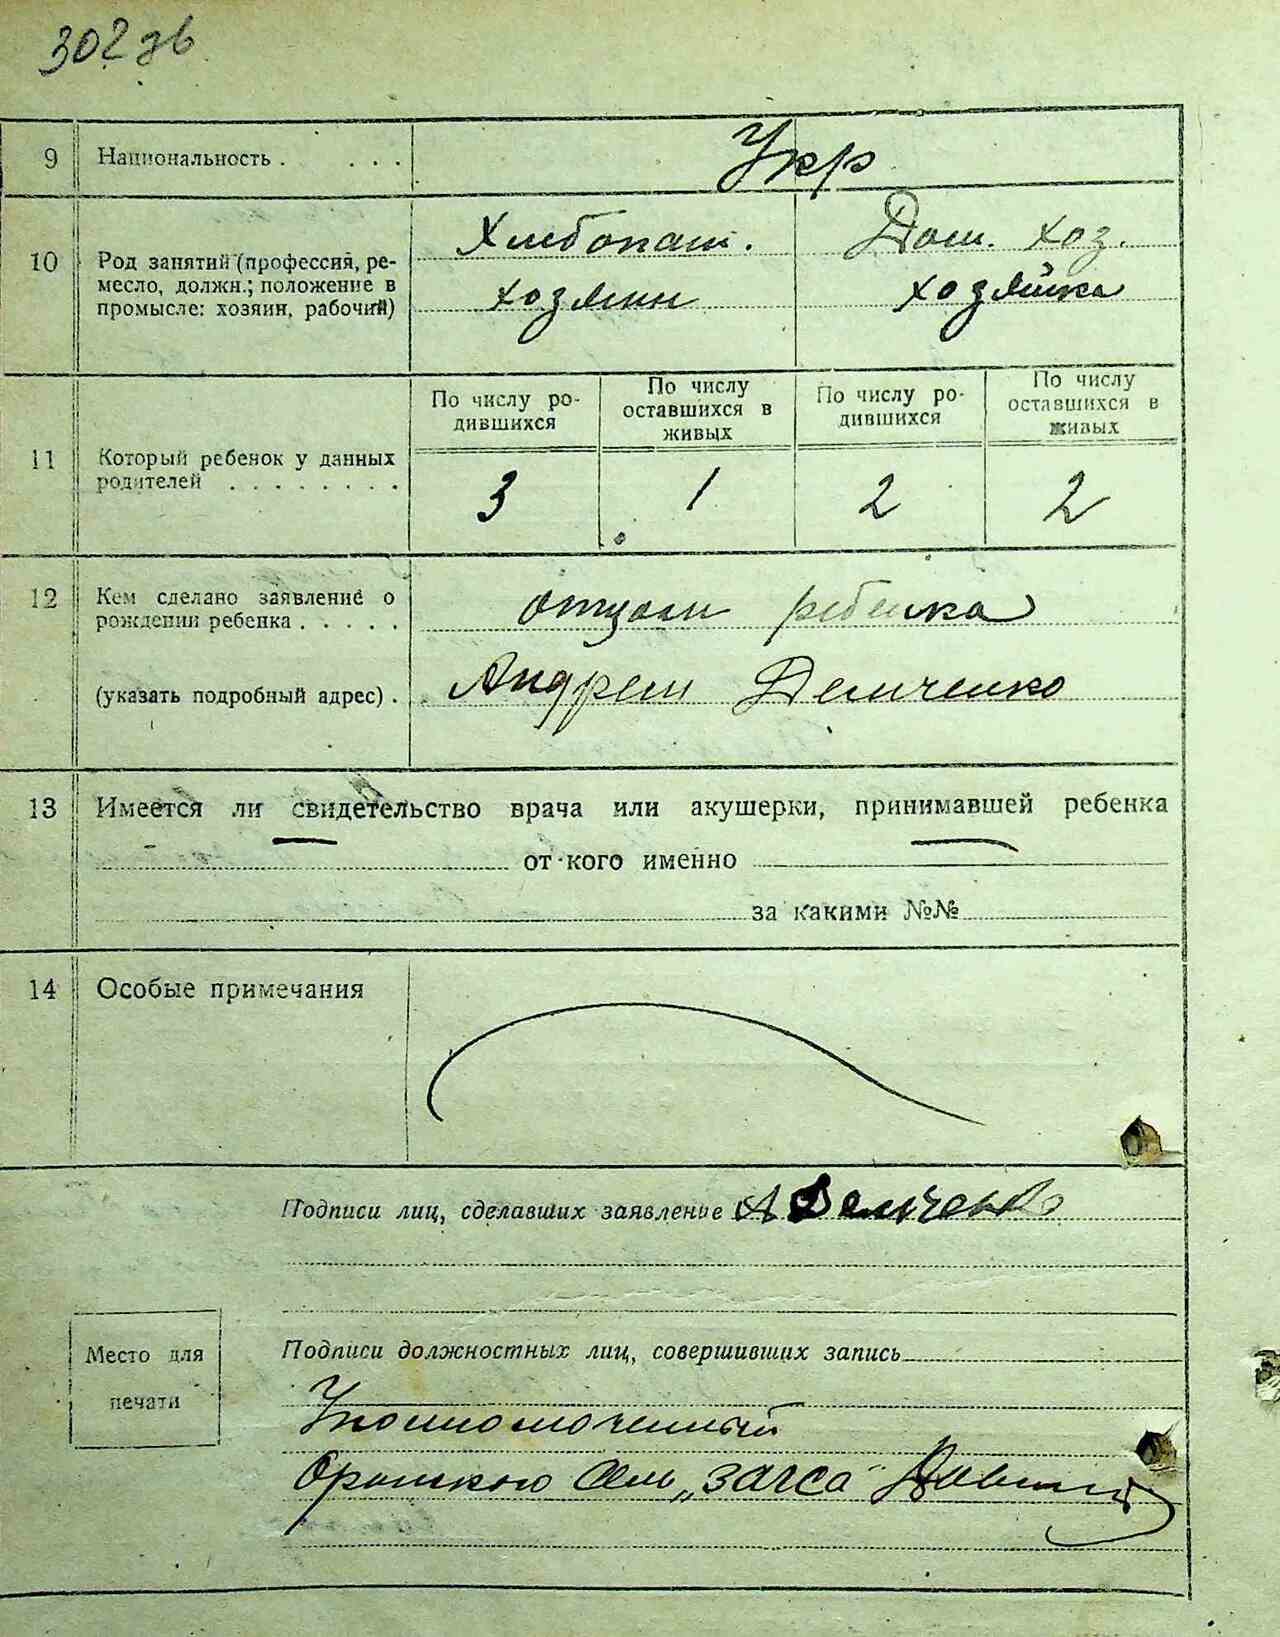 302 зв
9 Национальность . . . . Укр
10 Род занятий (профессия, ре-
месло, должн.; положение в
промысле: хозяин, рабочий)
Хлебопаш. Дом. хоз.
хозяин хозяйка
11 Который ребенок у данных
родителей . . . . . . . .
По числу ро-
дившихся
По числу
оставшихся в
живых
По числу ро-
дившихся
По числу
оставшихся в
живых
3 1 2 2
12 Кем сделано заявление о
рождении ребенка . . . . .
(указать подробный адрес) .
отцом ребенка
Андреем Демченко
13 Имеется ли свидетельство врача или акушерки, принимавшей ребенка
от кого именно
за какими №№
14 Особые примечания
Подписи лиц, сделавших заявление А Демченко
Место для
печати
Подписи должностных лиц, совершивших запись
Уполномоченный
"загса"